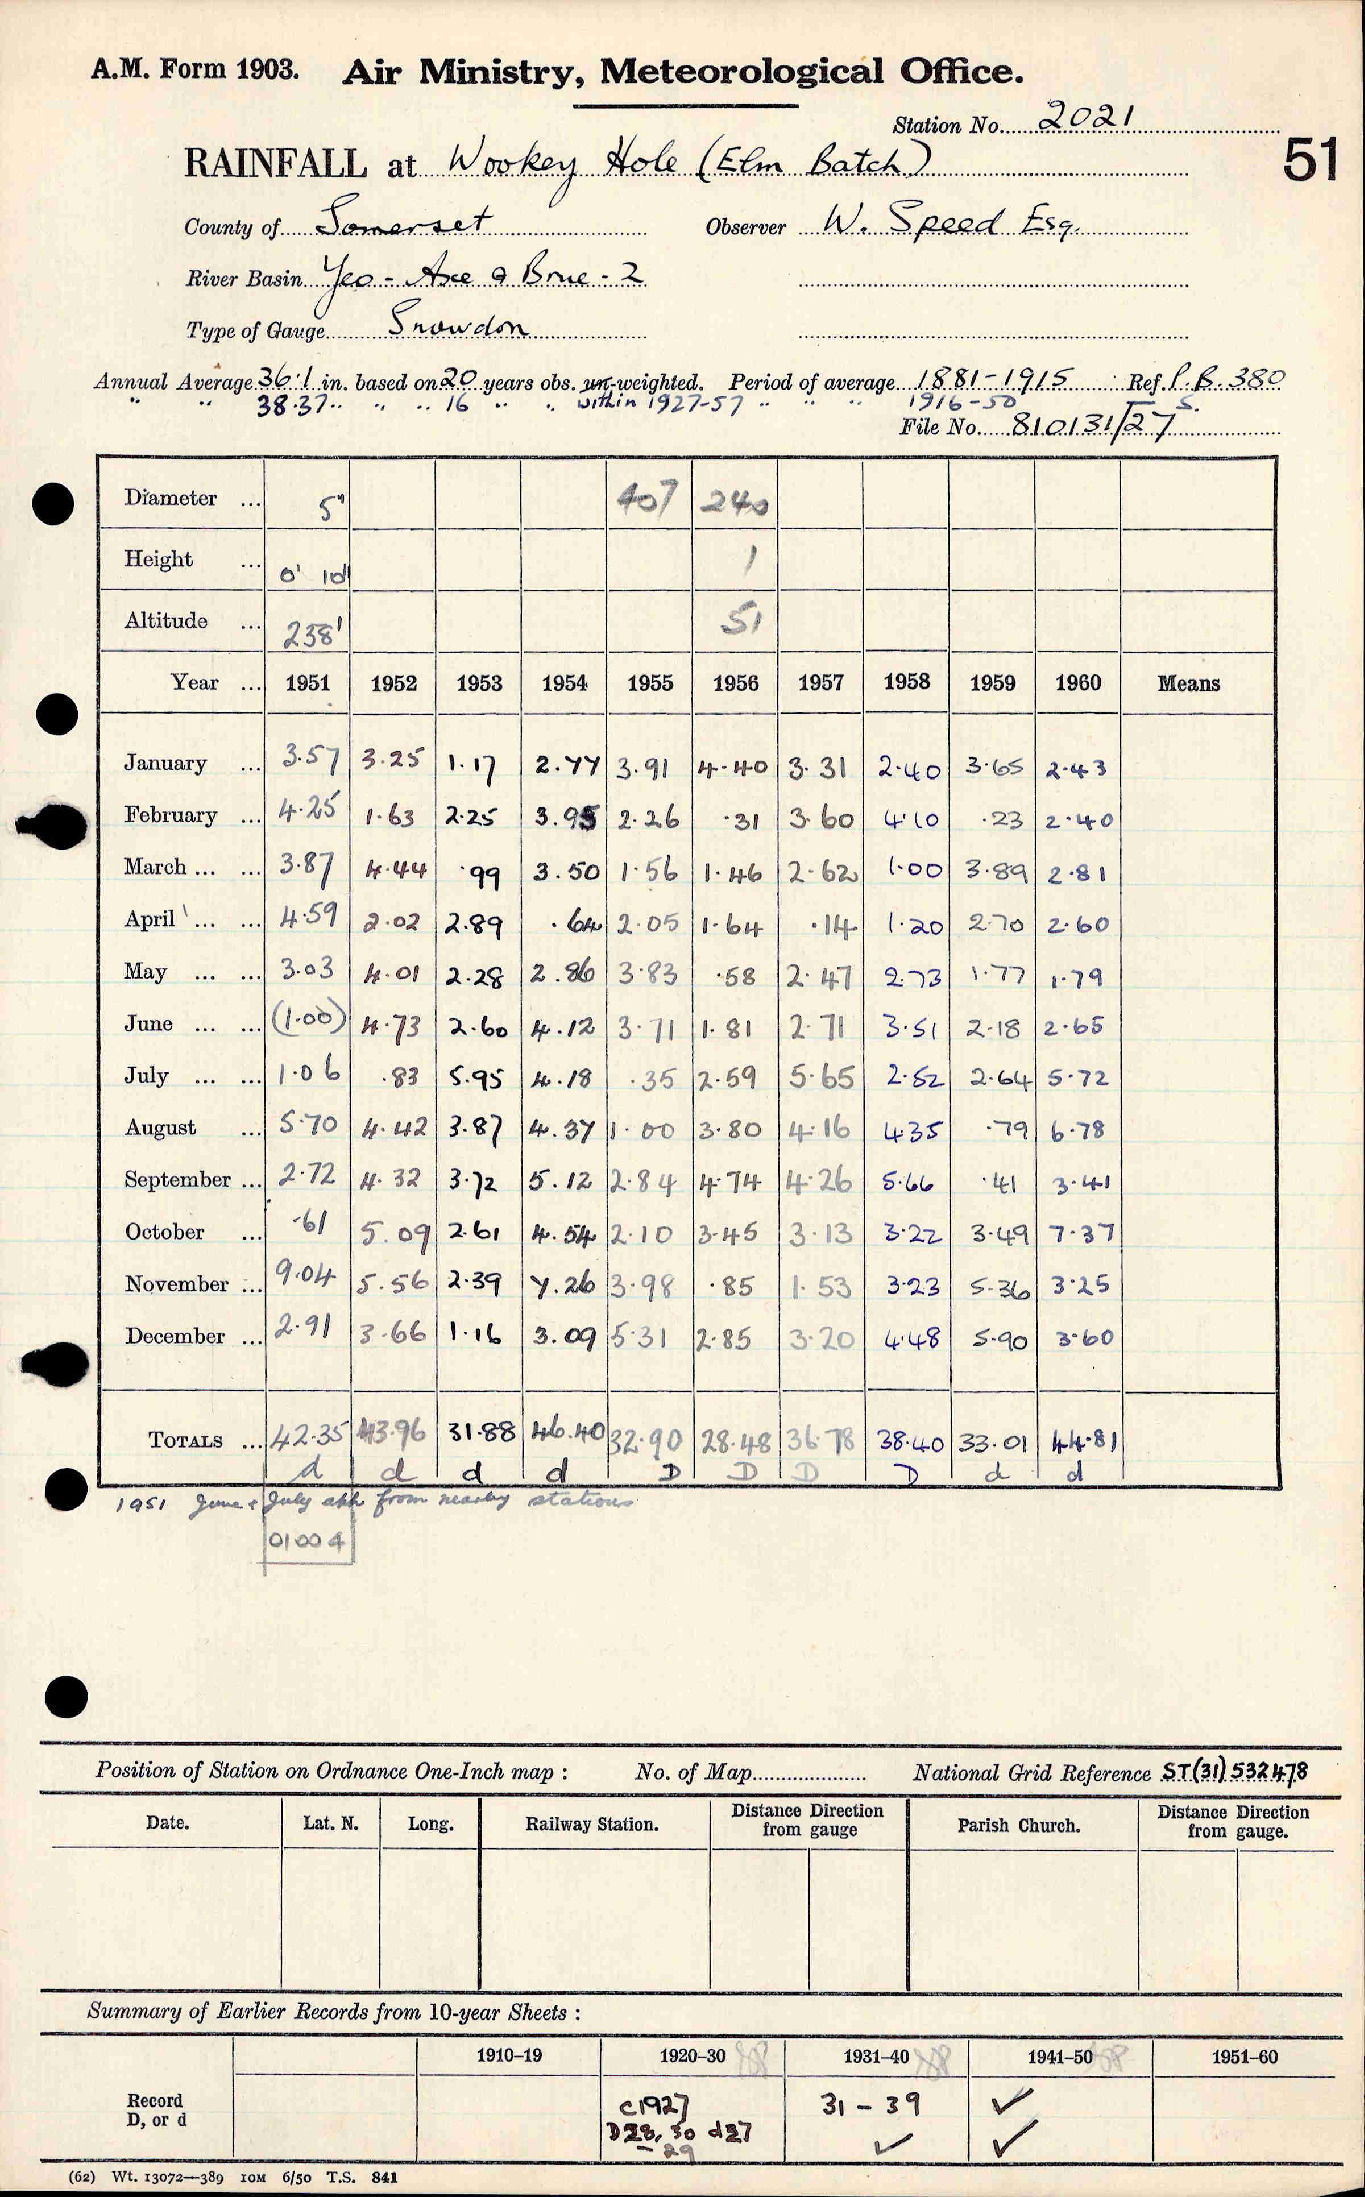 A.M. Form 1903. Air Ministry, Meteorological Office.
Station No. 2021
51
RAINFALL at Wookey Hole (Elm Batch)
County of Somerset Observer W. Speed Esq.
River Basin Yeo - Axe & Brue - 2
Type of Gauge Snowdon
Annual Average 36.1 in. based on 20 years obs. un-weighted. Period of average 1881-1915 Ref. P.B. 380
" " 38.37 " " " 16 " " within 1927-57 " " " 1916-50 S.
File No. 810131/T27
Diameter ... 5" 407 240
Height ... 0' 10" 1
Altitude ... 238' 51
Year ... 1951 1952 1953 1954 1955 1956 1957 1958 1959 1960 Means
January ... 3.57 3.25 1.17 2.77 3.91 4.40 3.31 2.40 3.65 2.43
February ... 4.25 1.63 2.25 3.95 2.26 .31 3.60 4.10 .23 2.40
March ... ... 3.87 4.44 .99 3.50 1.56 1.46 2.62 1.00 3.89 2.81
April ... ... 4.59 2.02 2.89 .64 2.05 1.64 .14 1.20 2.70 2.60
May ... ... 3.03 4.01 2.28 2.86 3.83 .58 2.47 2.73 1.77 1.79
June ... ... (1.00) 4.73 2.60 4.12 3.71 1.81 2.71 3.51 2.18 2.65
July ... ... 1.06 .83 5.95 4.18 .35 2.59 5.65 2.52 2.64 5.72
August ... 5.70 4.42 3.87 4.37 1.00 3.80 4.16 4.35 .79 6.78
September ... 2.72 4.32 3.72 5.12 2.84 4.74 4.26 5.66 .41 3.41
October ... .61 5.09 2.61 4.54 2.10 3.45 3.13 3.22 3.49 7.37
November ... 9.04 5.56 2.39 7.26 3.98 .85 1.53 3.23 5.36 3.25
December ... 2.91 3.66 1.16 3.09 5.31 2.85 3.20 4.48 5.90 3.60
TOTALS ... 42.35 43.96 31.88 46.40 32.90 28.48 36.78 38.40 33.01 44.81
d d d d D D D D d d
1951 June & July from nearby stations
01004
Position of Station on Ordnance One-Inch map : No. of Map National Grid Reference ST(31) 532478
Date. Lat. N. Long. Railway Station. Distance Direction from gauge Parish Church. Distance Direction from gauge.
Summary of Earlier Records from 10-year Sheets :
1910–19 1920–30 1931–40 1941–50 1951–60
Record c1927 31 - 39 ✓
D, or d D28, 30 d27 ✓ ✓
- 29
(62) Wt. 13072—389 10M 6/50 T.S. 841